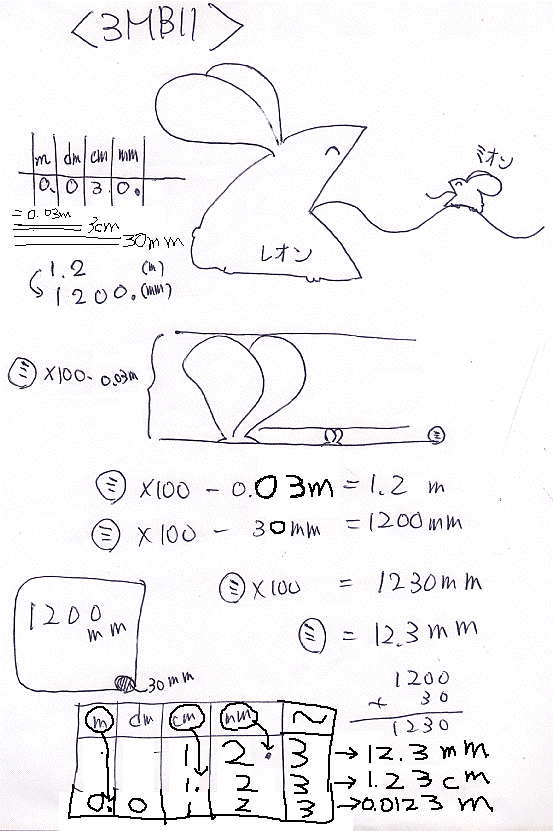 <3MB11>
m dm cm mm
0. 0 3. 0.
= 0.03m
3cm
30mm
1.2 (m)
1200. (mm)
ミオン
レオン
ミ ×100 - 0.03m
ミ
ミ ×100 - 0.03m = 1.2 m
ミ ×100 - 30mm = 1200mm
ミ ×100 = 1230mm
ミ = 12.3mm
1200
mm
30mm
1200
+ 30
1230
m dm cm mm ~
1 2. 3 → 12.3 mm
1. 2 3 → 1.23 cm
0. 0 1 2 3 → 0.0123 m